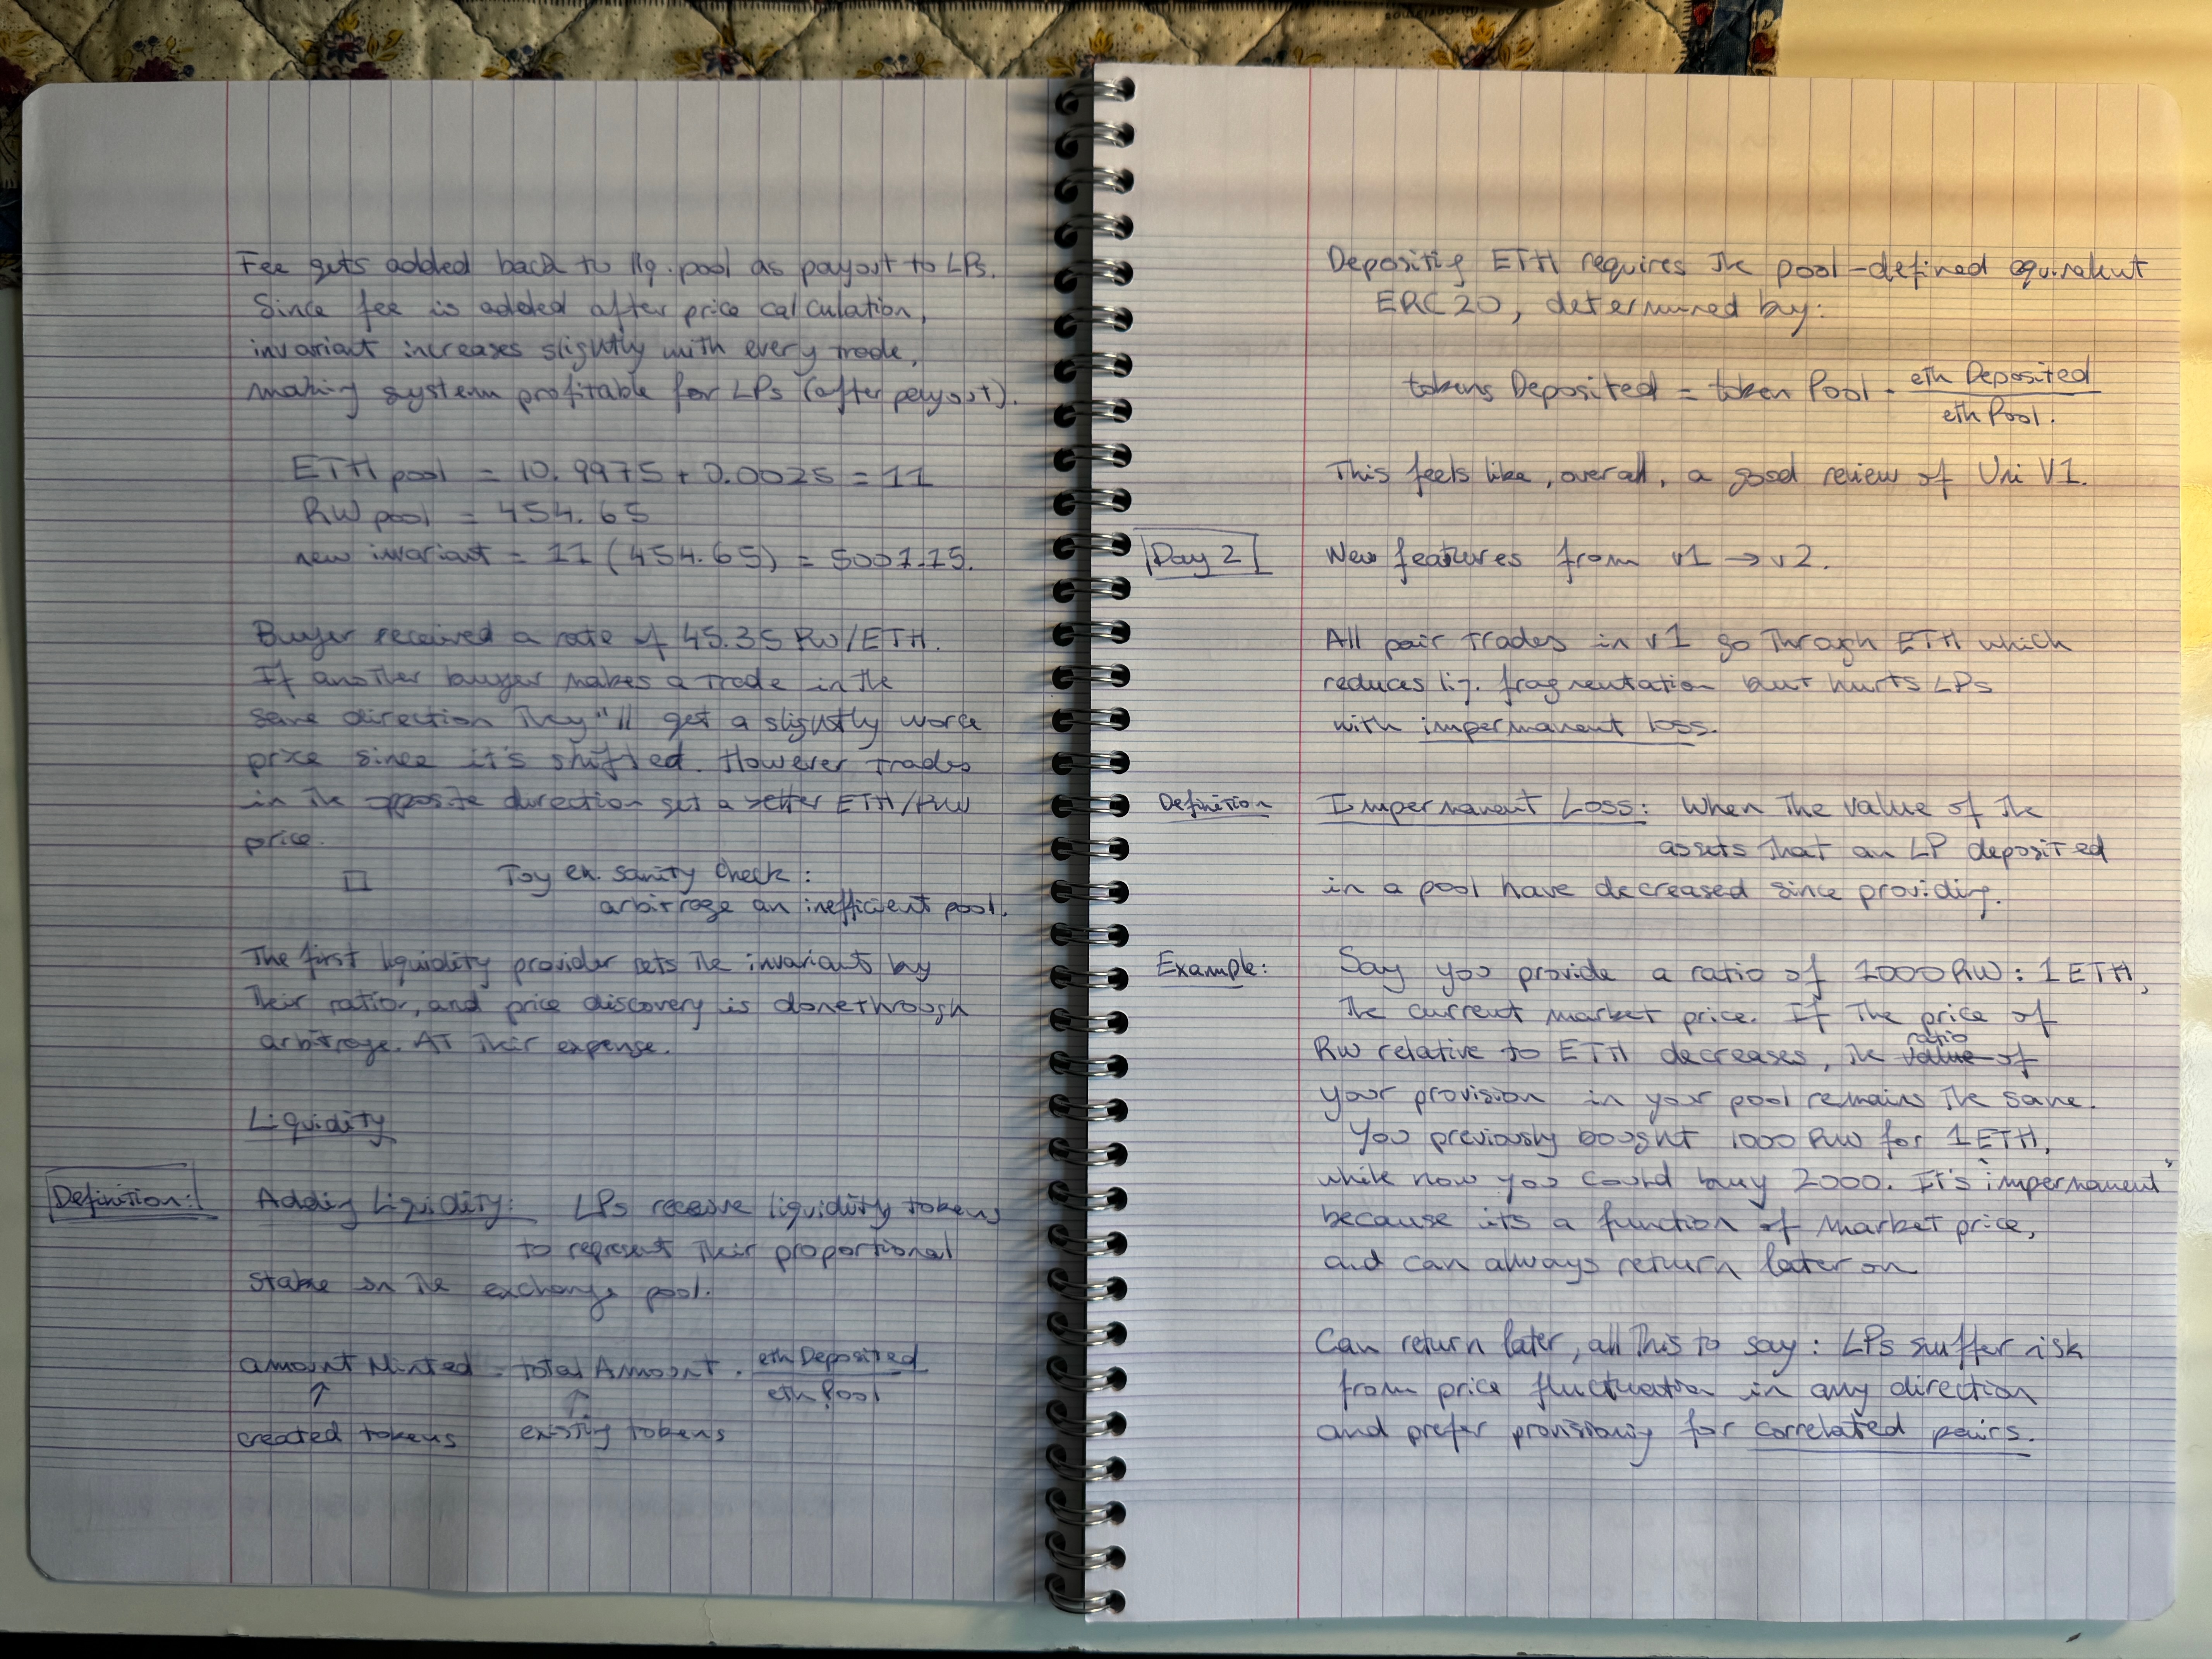 Fee gets added back to liq. pool as payout to LPs.
Since fee is added after price calculation,
invariant increases slightly with every trade,
making system profitable for LPs (after payout).
ETH pool = 10.9975 + 0.0025 = 11
RW pool = 454.65
new invariant = 11 (454.65) = 5001.15.
Buyer received a rate of 45.35 RW/ETH.
If another buyer makes a trade in the
same direction they"ll get a slightly worse
price since it's shifted. However trades
in the opposite direction get a better ETH/RW
price.
□ Toy ex. sanity check:
arbitrage an inefficient pool.
The first liquidity provider sets the invariant by
their ratior, and price discovery is done through
arbitrage. AT their expense.
Liquidity
Definition: Adding Liquidity: LPs receive liquidity tokens
to represent their proportional
stake on the exchange pool.
amount Minted = total Amount · eth Deposited / eth Pool
↑ ↑
created tokens existing tokens
Depositing ETH requires the pool-defined equivalent
ERC20, determined by:
tokens Deposited = token Pool · eth Deposited / eth Pool.
This feels like, overall, a good review of Uni V1.
Day 2 New features from v1 → v2.
All pair trades in v1 go through ETH which
reduces liq. fragmentation but hurts LPs
with impermanent loss.
Definition Impermanent Loss: When the value of the
assets that an LP deposited
in a pool have decreased since providing.
Example: Say you provide a ratio of 1000 RW : 1 ETH,
the current market price. If the price of
RW relative to ETH decreases, the value ratio of
your provision in your pool remains the same.
You previously bought 1000 RW for 1 ETH,
while now you could buy 2000. It's "impermanent"
because its a function of market price,
and can always return later on
Can return later, all this to say: LPs suffer risk
from price fluctuation in any direction
and prefer provisioning for correlated pairs.